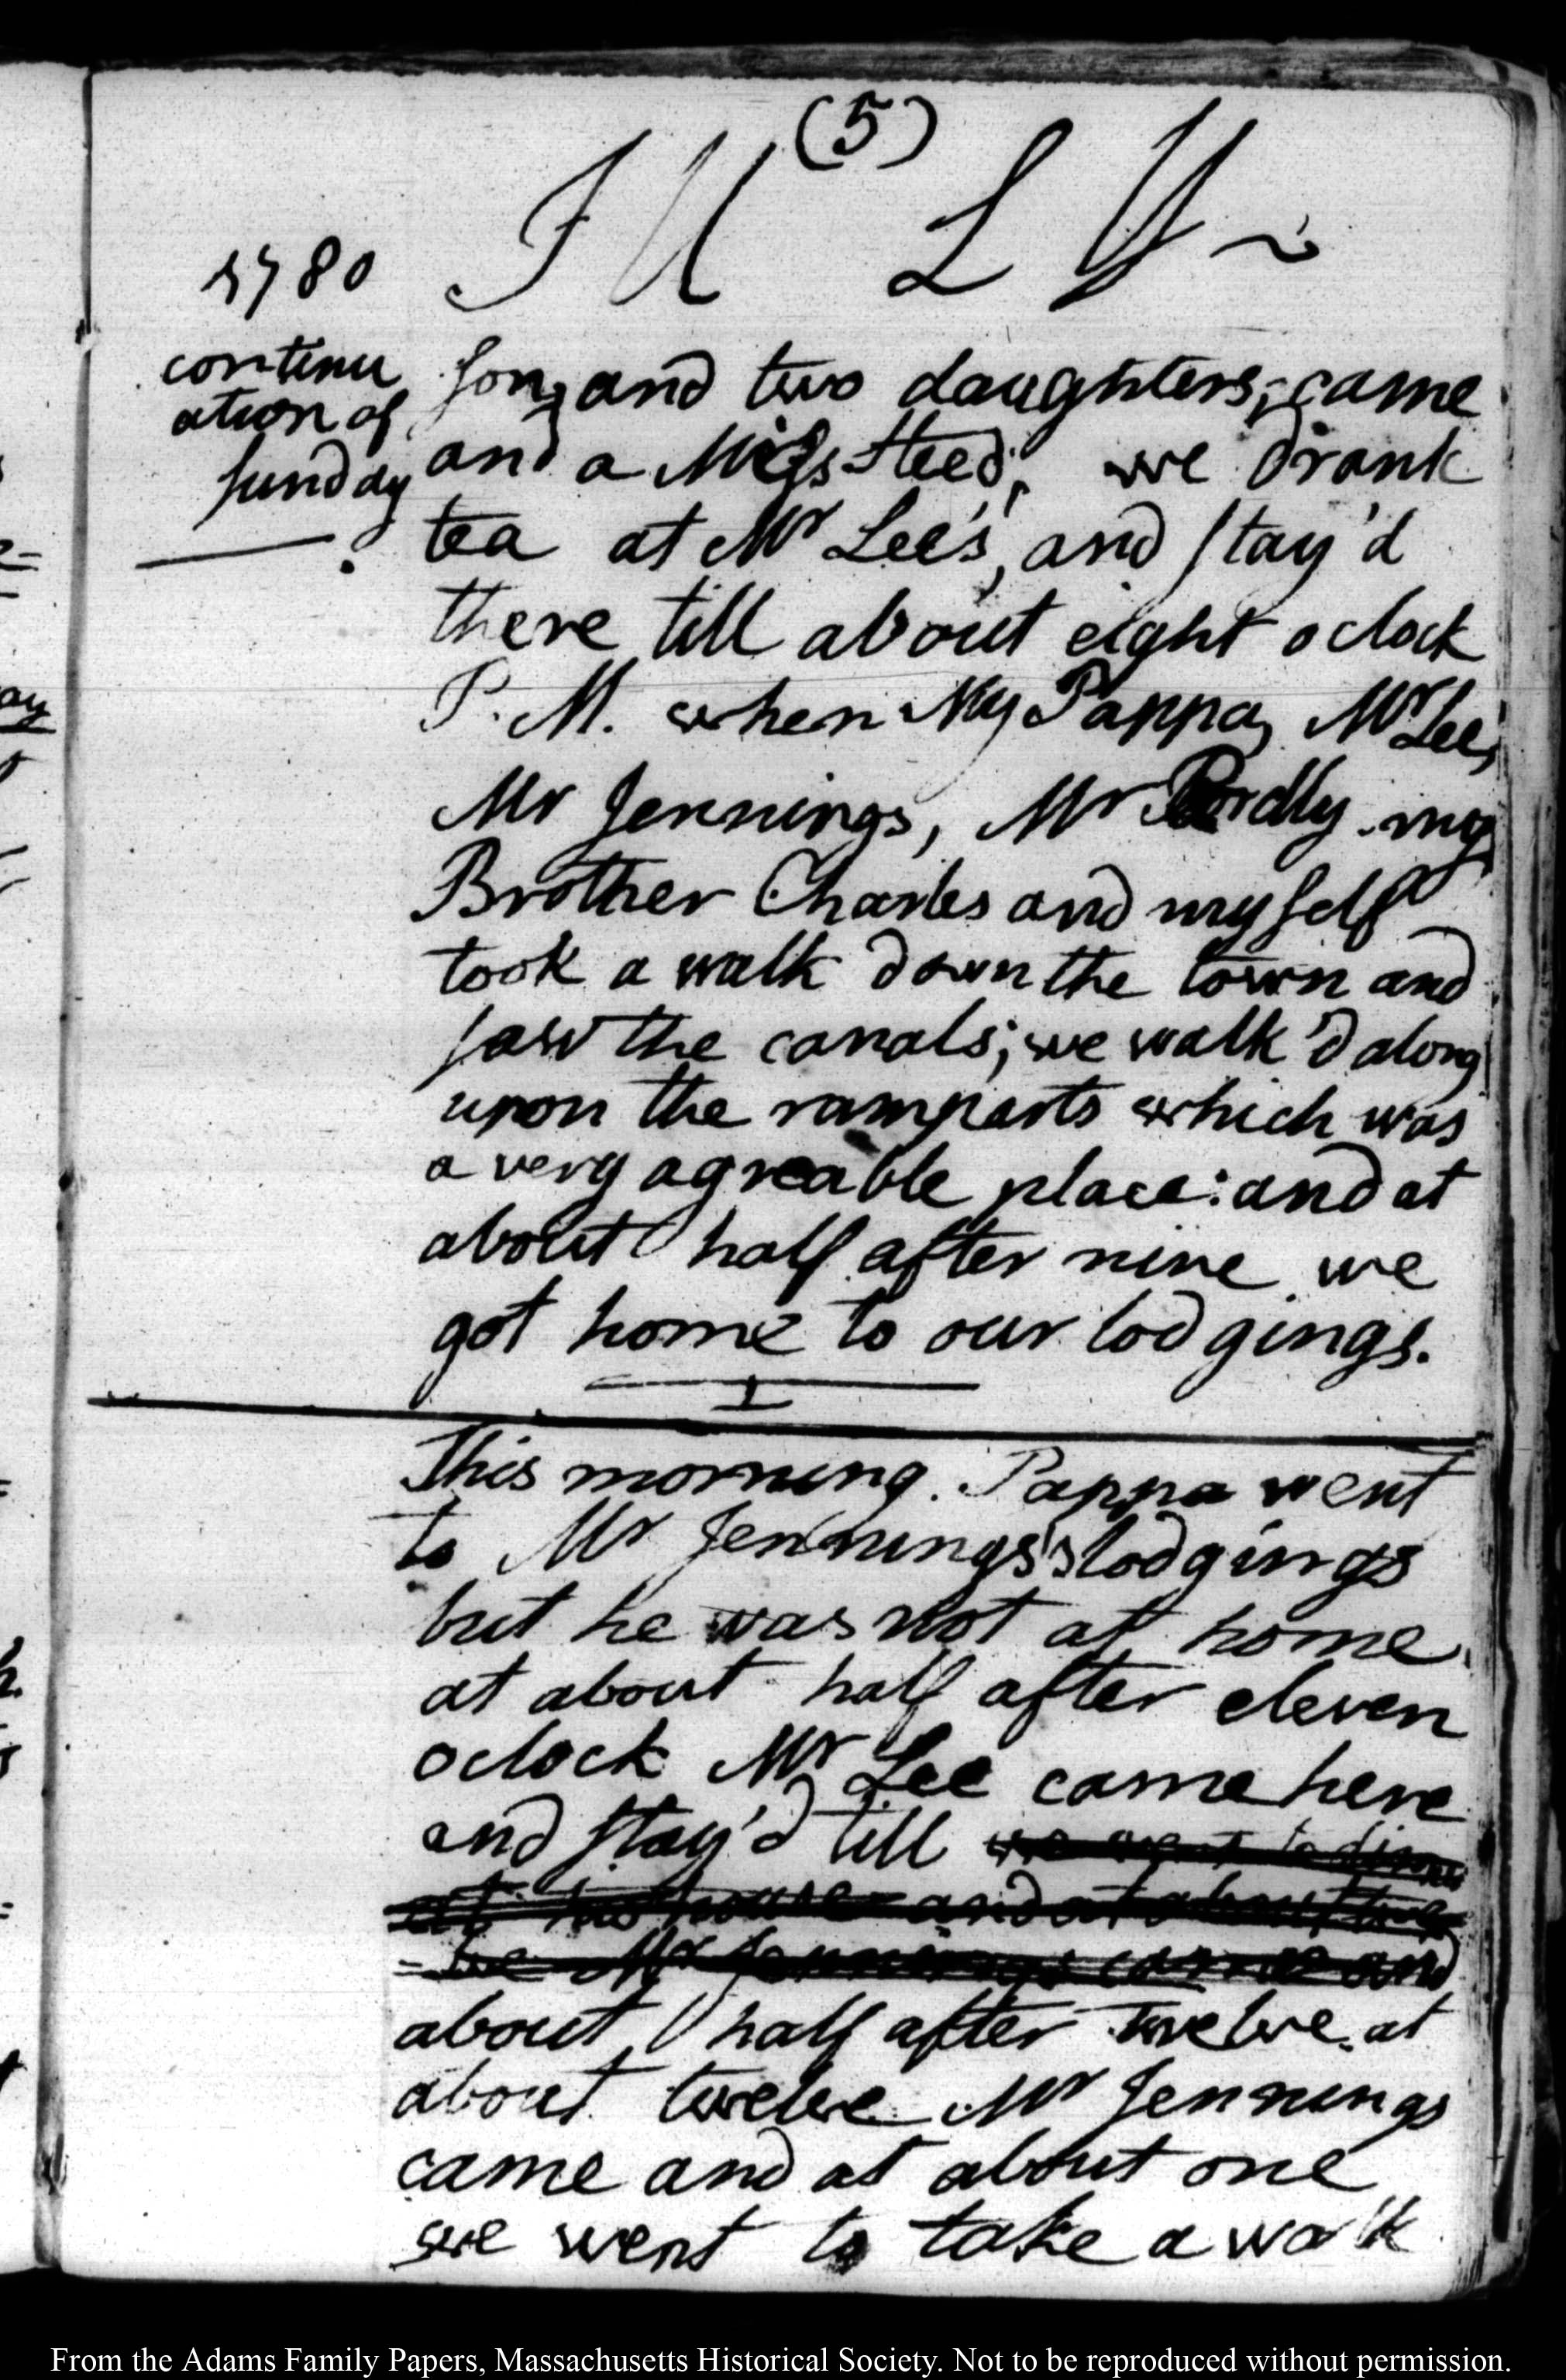 (5)
JULY
1780
continu
ation of
sunday
son, and two daughters; came
and a Miss Steed; we drank
tea at Mr Lee's, and stay'd
there till about eight oclock
P. M. when My Pappa, Mr Lee,
Mr Jennings, Mr my
Brother Charles and myself
took a walk down the town and
saw the canals; we walk'd along
upon the ramparts which was
a very agreable place: and at
about half after nine we
got home to our lodgings.
This morning. Pappa went
to Mr Jennings's lodgings
but he was not at home.
at about half after eleven
oclock Mr Lee came here
and stay'd till we went to dinner
at his house and at about twel
-ve Mr Jennings came and
about half after twelve. at
about twelve Mr Jennings
came and at about one
we went to take a walk
From the Adams Family Papers, Massachusetts Historical Society. Not to be reproduced without permission.